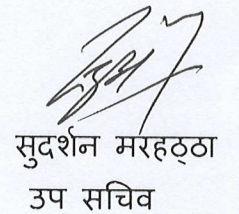 सुदर्शन मरहठ्ठा
उप सचिव